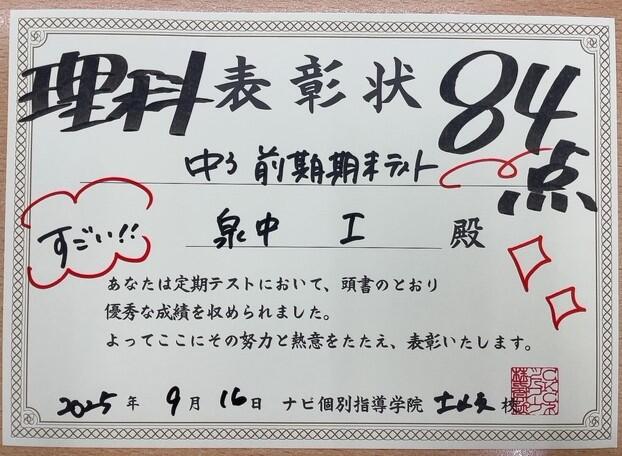 理科 表彰状 84点
中3 前期期末テスト
すごい!!
泉中 工 殿
あなたは定期テストにおいて、頭書のとおり
優秀な成績を収められました。
よってここにその努力と熱意をたたえ、表彰いたします。
2025 年 9 月 16 日 ナビ個別指導学院 校